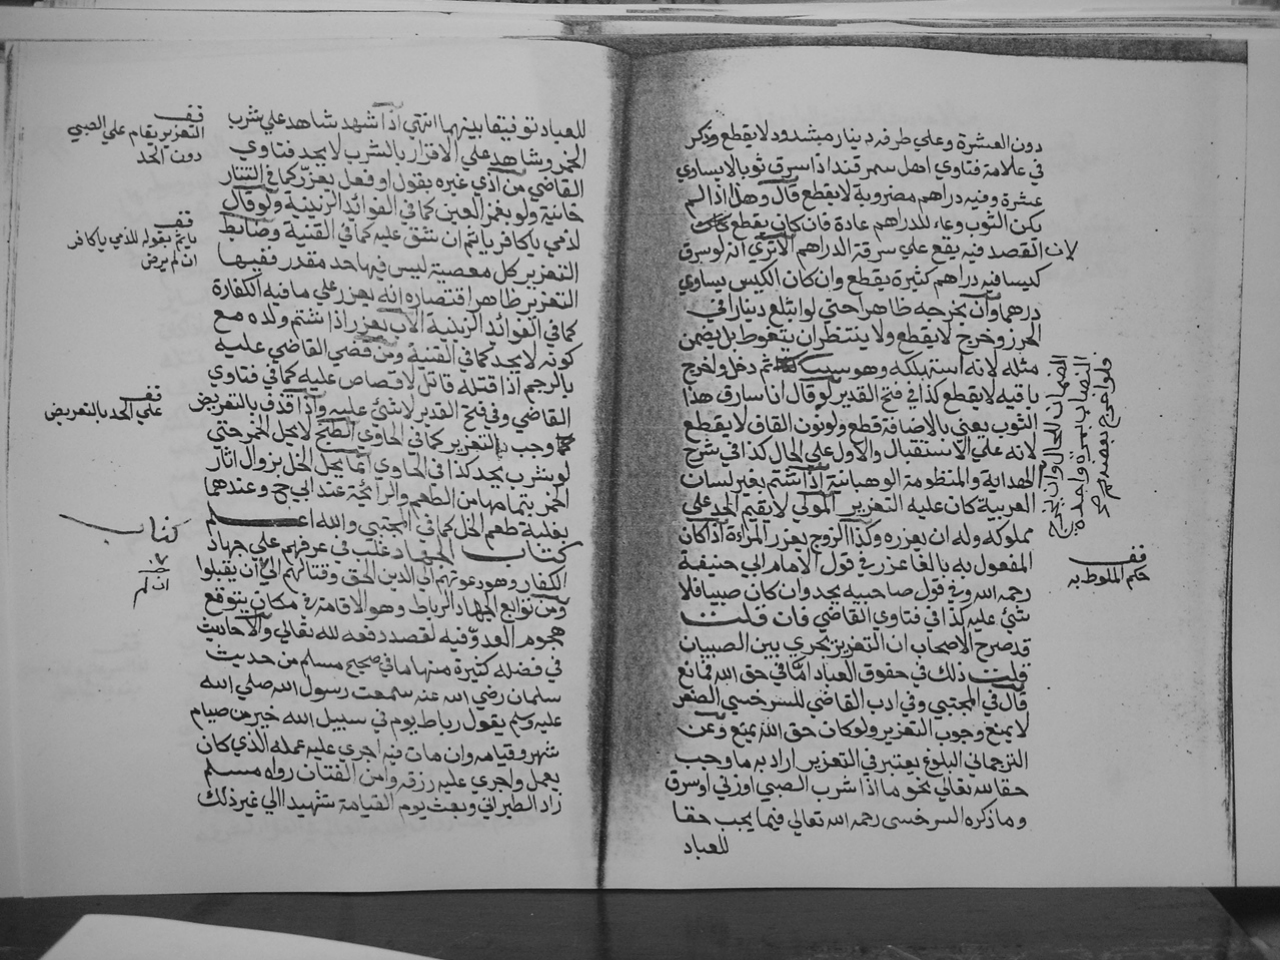 دون العشرة وعلي طرفه دينار مشدود لا يقطع وذكر
في علامة فتاوي اهل سمرقند اذا سرق ثوبا لا يساوي
عشرة وفيه دراهم مضروبة لا يقطع قال وهذا اذا لم
يكن الثوب وعاء للدراهم عادة فان كان يقطع
لان القصد فيه يقع علي سرقة الدراهم الا تري انه لو سرق
كيسا فيه دراهم كثيرة يقطع وان كان الكيس يساوي
درهما وان يخرجه ظاهرا حتي لو ابتلع دينارا في
الحرز وخرج لا يقطع ولا ينتظر ان يتغوط بل يضمن
مثله لانه استهلكه وهو سبب ثم دخل واخرج
باقيه لا يقطع كذا في فتح القدير لو قال انا سارق هذا
الثوب يعني بالاضافة قطع ولو نون القاف لا يقطع
لانه علي الاستقبال والاول علي الحال كذا في شرح
الهداية والمنظومة الوهبانية اذا شتم بغير لسان
العربية كان عليه التعزير المولي لا يقيم الحد علي
مملوكه وله ان يعزره وكذا الزوج يعزر المراءة اذا كان
المفعول به بالغا عزر في قول الامام ابي حنيفة
رحمه الله وفي قول صاحبيه يحد وان كان صبيا فلا
شئ عليه كذا في فتاوي القاضي فان قلت
قد صرح الاصحاب ان التعزير يجري بين الصبيان
قلت ذلك في حقوق العباد اما في حق الله فمانع
قال في المجتبي وفي ادب القاضي للسرخسي الصغر
لا يمنع وجوب التعزير ولو كان حق الله يمنع وعن
الترجماني البلوغ يعتبر في التعزير اراد به ما وجب
حقا لله تعالي نحو ما اذا شرب الصبي او زني او سرق
وما ذكره السرخسي رحمه الله تعالي فيما يجب حقا
للعباد
فلو اخرج بعضه ثم
النصاب بمرة واحدة
الضمان للحال وان يخرج
قف
حكم الملوط به
للعباد توفيقا بينهما انتهي اذا شهد شاهد علي شرب
الخمر وشاهد علي الاقرار بالشرب لا يحد فتاوي
القاضي من اذي غيره بقول او فعل يعزر كما في التتار
خانية ولو بغمز العين كما في الفوائد الزينية ولو قال
لذمي يا كافر ياثم ان شق عليه كما في القنية وضابط
التعزير كل معصية ليس فيها حد مقدر ففيها
التعزير ظاهر اقتصاره انه يعزر علي ما فيه الكفارة
كما في الفوائد الزينية الاب يعزر اذا شتم ولده مع
كونه لا يحد كما في القنية ومن قضي القاضي عليه
بالرجم اذا قتله قاتل لا قصاص عليه كما في فتاوي
القاضي وفي فتح القدير لا شئ عليه واذا قذف بالتعريض
وجب التعزير كما في الحاوي الطبخ لا يحل الخمر حتي
لو شرب يحد كذا في الحاوي انما يحل الخل بزوال اثار
الخمر بتمامها من الطعم والرائحة عند ابي ح وعندهما
بغلبة طعم الخل كما في المجتبي والله اعلم
كتاب الجهاد غلب في عرفهم علي جهاد
الكفار وهو دعوتهم الي الدين الحق وقتالهم الي ان يقبلوا
ومن توابع الجهاد الرباط وهو الاقامة في مكان يتوقع
هجوم العدو فيه لقصد دفعه لله تعالي والاحاديث
في فضله كثيرة منها ما في صحيح مسلم من حديث
سلمان رضي الله عنه سمعت رسول الله صلي الله
عليه وسلم يقول رباط يوم في سبيل الله خير من صيام
شهر وقيامه وان مات فيه اجري عليه عمله الذي كان
يعمل واجري عليه رزقه وامن الفتان رواه مسلم
زاد الطبراني وبعث يوم القيامة شهيدا الي غير ذلك
قف
التعزير يقام علي الصبي
دون الحد
قف
ياثم بقوله للذمي يا كافر
ان لم يرض
قف
علي الحد بالتعريض
كتاب
ان لم